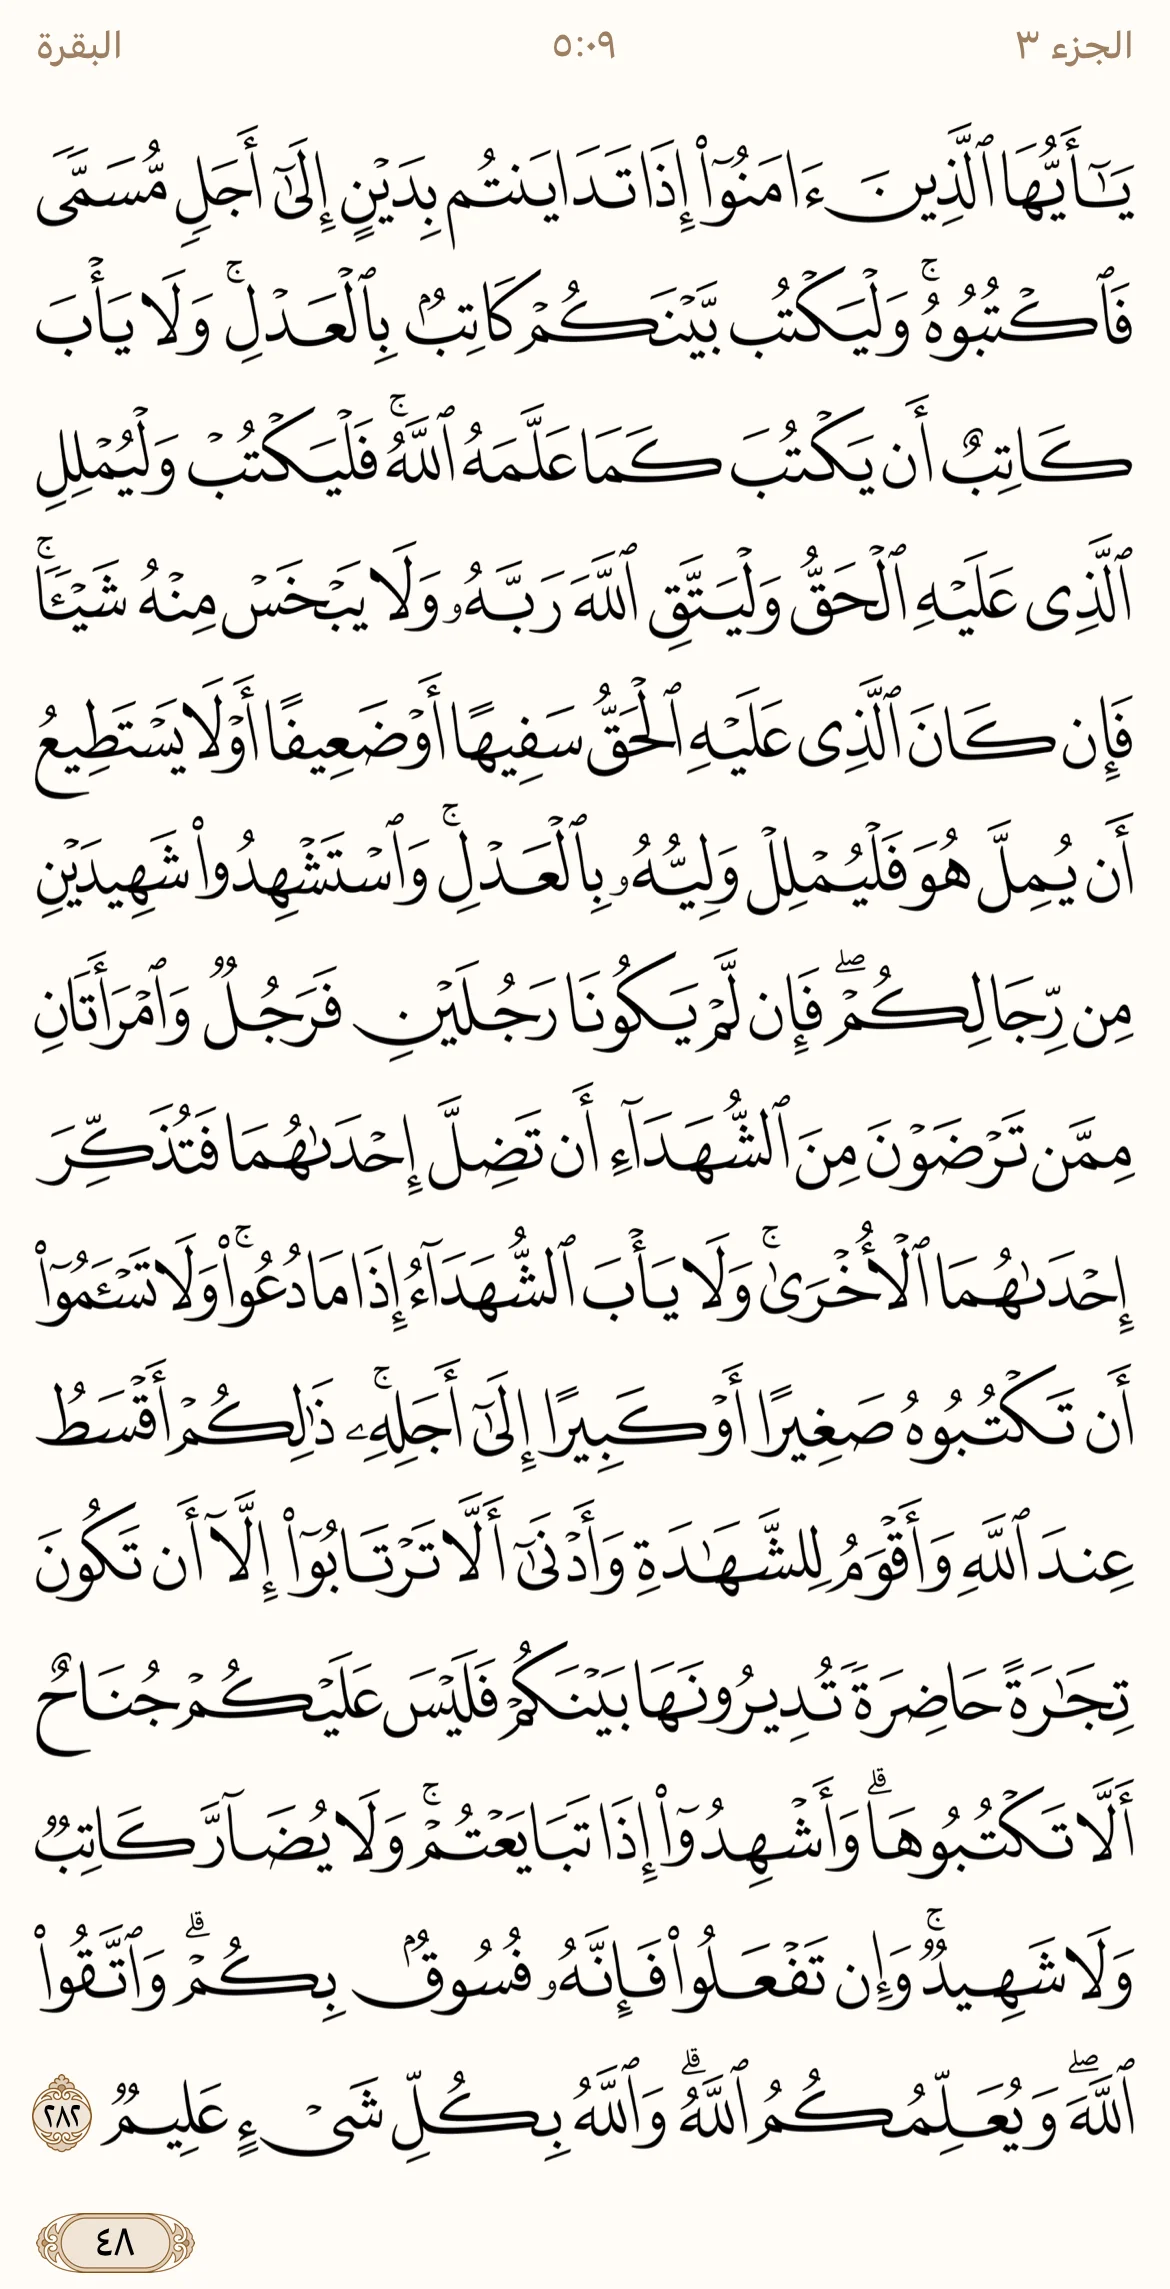 الجزء ٣
٥:٠٩
البقرة
يَـٰٓأَيُّهَا ٱلَّذِينَ ءَامَنُوٓا۟ إِذَا تَدَايَنتُم بِدَيْنٍ إِلَىٰٓ أَجَلٍ مُّسَمًّى
فَٱكْتُبُوهُ ۚ وَلْيَكْتُب بَّيْنَكُمْ كَاتِبٌۢ بِٱلْعَدْلِ ۚ وَلَا يَأْبَ
كَاتِبٌ أَن يَكْتُبَ كَمَا عَلَّمَهُ ٱللَّهُ ۚ فَلْيَكْتُبْ وَلْيُمْلِلِ
ٱلَّذِى عَلَيْهِ ٱلْحَقُّ وَلْيَتَّقِ ٱللَّهَ رَبَّهُۥ وَلَا يَبْخَسْ مِنْهُ شَيْـًٔا ۚ
فَإِن كَانَ ٱلَّذِى عَلَيْهِ ٱلْحَقُّ سَفِيهًا أَوْ ضَعِيفًا أَوْ لَا يَسْتَطِيعُ
أَن يُمِلَّ هُوَ فَلْيُمْلِلْ وَلِيُّهُۥ بِٱلْعَدْلِ ۚ وَٱسْتَشْهِدُوا۟ شَهِيدَيْنِ
مِن رِّجَالِكُمْ ۖ فَإِن لَّمْ يَكُونَا رَجُلَيْنِ فَرَجُلٌ وَٱمْرَأَتَانِ
مِمَّن تَرْضَوْنَ مِنَ ٱلشُّهَدَآءِ أَن تَضِلَّ إِحْدَىٰهُمَا فَتُذَكِّرَ
إِحْدَىٰهُمَا ٱلْأُخْرَىٰ ۚ وَلَا يَأْبَ ٱلشُّهَدَآءُ إِذَا مَا دُعُوا۟ ۚ وَلَا تَسْـَٔمُوٓا۟
أَن تَكْتُبُوهُ صَغِيرًا أَوْ كَبِيرًا إِلَىٰٓ أَجَلِهِۦ ۚ ذَٰلِكُمْ أَقْسَطُ
عِندَ ٱللَّهِ وَأَقْوَمُ لِلشَّهَـٰدَةِ وَأَدْنَىٰٓ أَلَّا تَرْتَابُوٓا۟ إِلَّآ أَن تَكُونَ
تِجَـٰرَةً حَاضِرَةً تُدِيرُونَهَا بَيْنَكُمْ فَلَيْسَ عَلَيْكُمْ جُنَاحٌ
أَلَّا تَكْتُبُوهَا ۗ وَأَشْهِدُوٓا۟ إِذَا تَبَايَعْتُمْ ۚ وَلَا يُضَآرَّ كَاتِبٌ
وَلَا شَهِيدٌ ۚ وَإِن تَفْعَلُوا۟ فَإِنَّهُۥ فُسُوقٌۢ بِكُمْ ۗ وَٱتَّقُوا۟
ٱللَّهَ ۖ وَيُعَلِّمُكُمُ ٱللَّهُ ۗ وَٱللَّهُ بِكُلِّ شَىْءٍ عَلِيمٌ ٢٨٢
٤٨